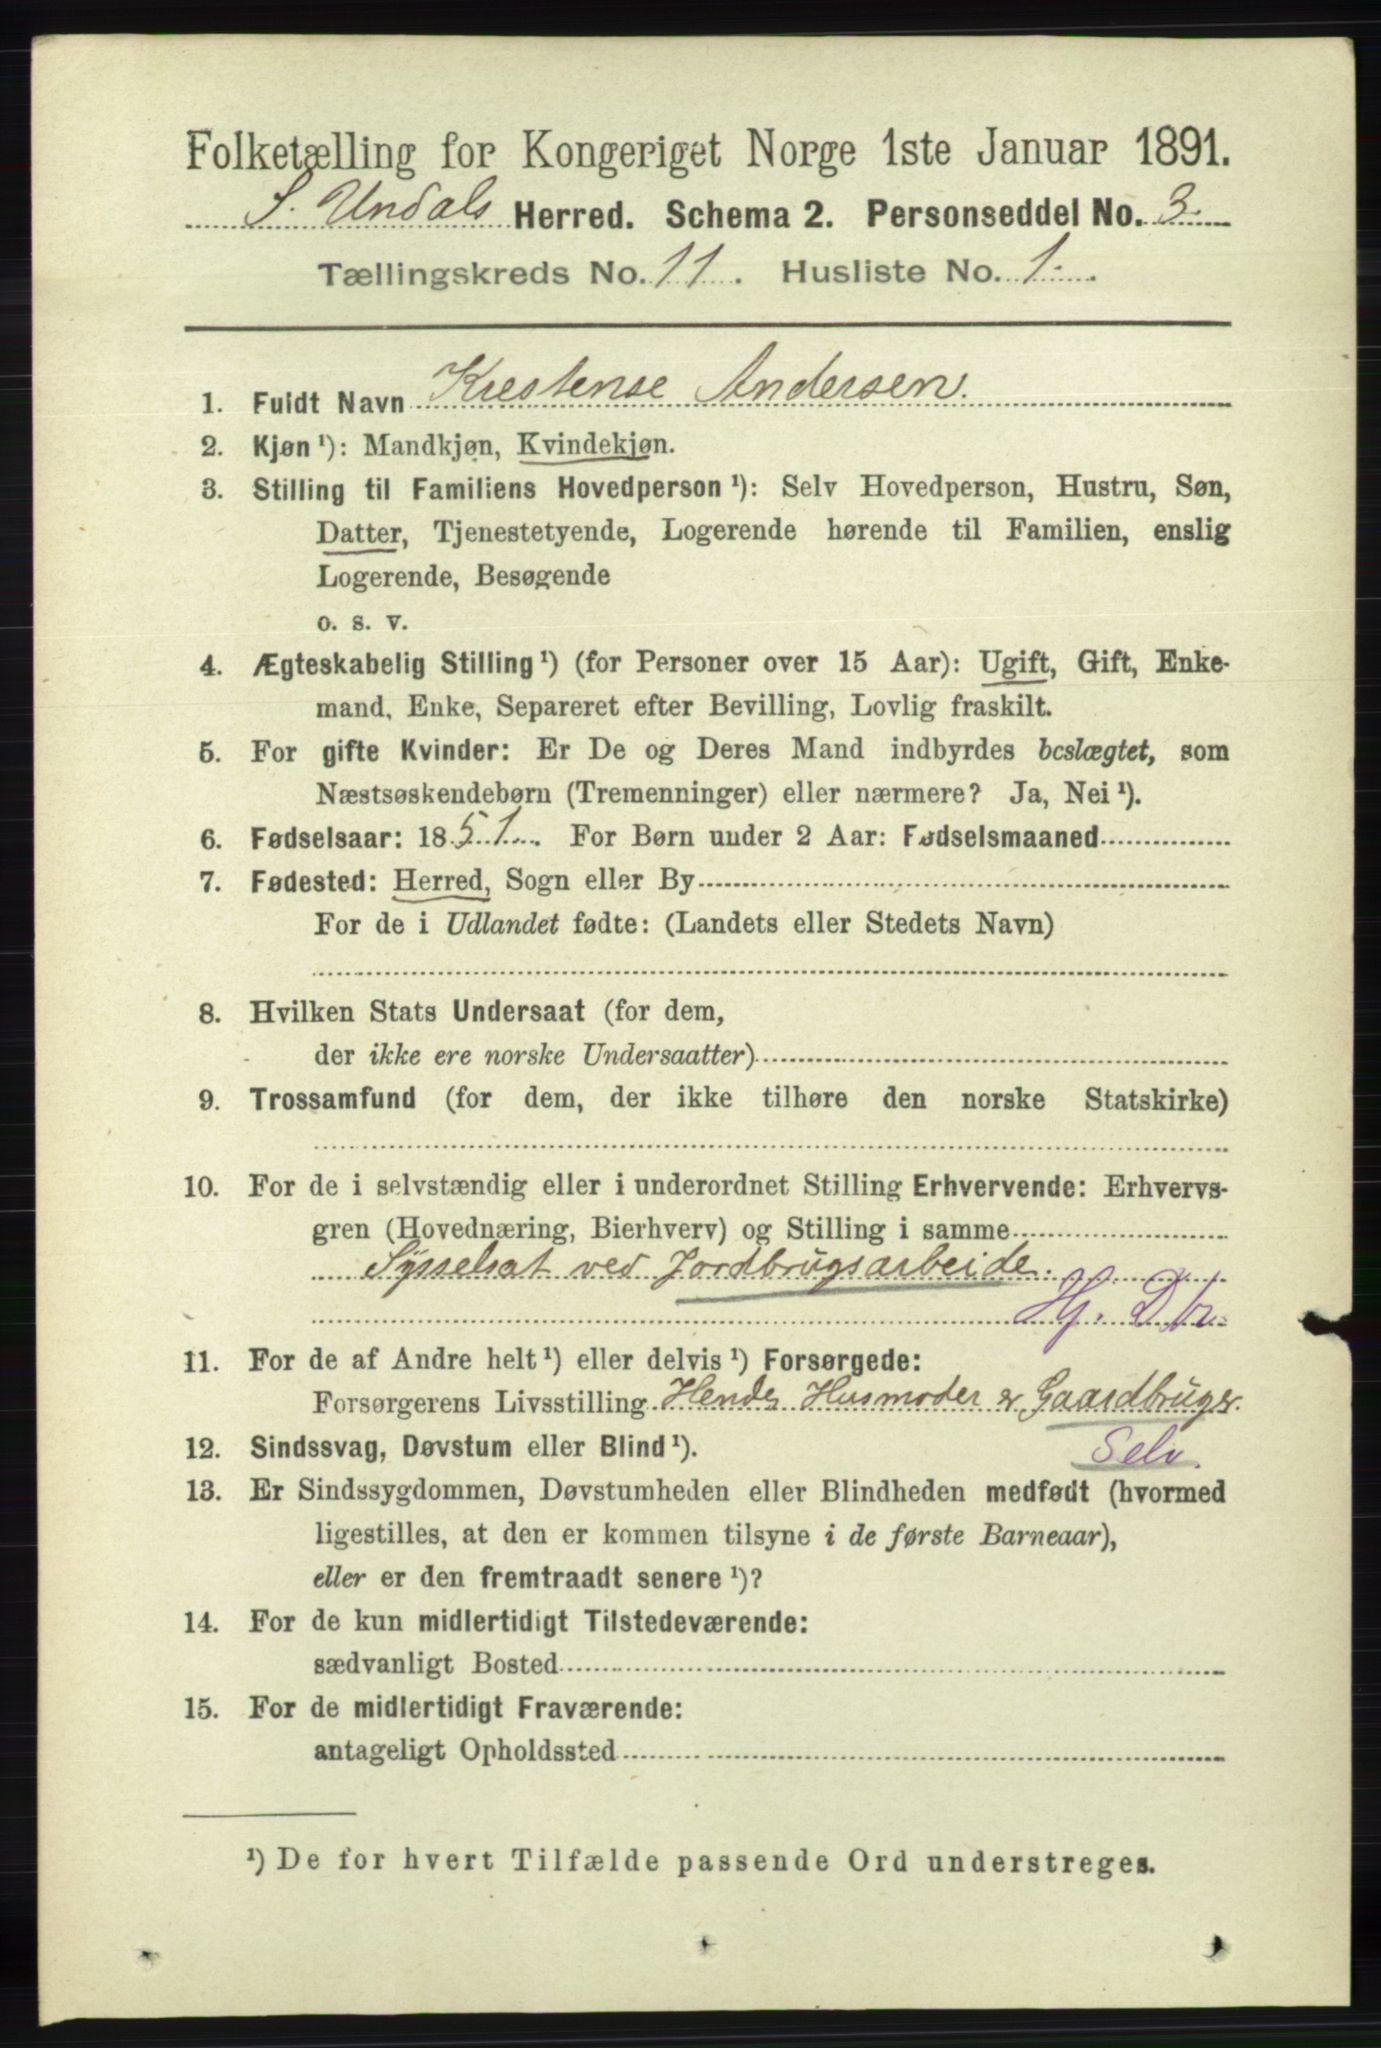 Folketælling for Kongeriget Norge 1ste Januar 1891.
S. Undals Herred. Schema 2. Personseddel No. 3.
Tællingskreds No. 11. Husliste No. 1.
1. Fuldt Navn Krestense Andersen.
2. Kjøn¹): Mandkjøn, Kvindekjøn.
3. Stilling til Familiens Hovedperson¹): Selv Hovedperson, Hustru, Søn,
Datter, Tjenestetyende, Logerende hørende til Familien, enslig
Logerende, Besøgende
o. s. v.
4. Ægteskabelig Stilling¹) (for Personer over 15 Aar): Ugift, Gift, Enke-
mand, Enke, Separeret efter Bevilling, Lovlig fraskilt.
5. For gifte Kvinder: Er De og Deres Mand indbyrdes beslægtet, som
Næstsøskendebørn (Tremenninger) eller nærmere? Ja, Nei¹).
6. Fødselsaar: 1851. For Børn under 2 Aar: Fødselsmaaned
7. Fødested: Herred, Sogn eller By
For de i Udlandet fødte: (Landets eller Stedets Navn)
8. Hvilken Stats Undersaat (for dem,
der ikke ere norske Undersaatter)
9. Trossamfund (for dem, der ikke tilhøre den norske Statskirke)
10. For de i selvstændig eller i underordnet Stilling Erhvervende: Erhvervs-
gren (Hovednæring, Bierhverv) og Stilling i samme
Sysselsat ved Jordbrugsarbeide.
Hj. Dtr.
11. For de af Andre helt¹) eller delvis¹) Forsørgede:
Forsørgerens Livsstilling Hendes Husmoder er Gaardbruger.
12. Sindssvag, Døvstum eller Blind¹). Selv.
13. Er Sindssygdommen, Døvstumheden eller Blindheden medfødt (hvormed
ligestilles, at den er kommen tilsyne i de første Barneaar),
eller er den fremtraadt senere¹)?
14. For de kun midlertidigt Tilstedeværende:
sædvanligt Bosted
15. For de midlertidigt Fraværende:
antageligt Opholdssted
¹) De for hvert Tilfælde passende Ord understreges.